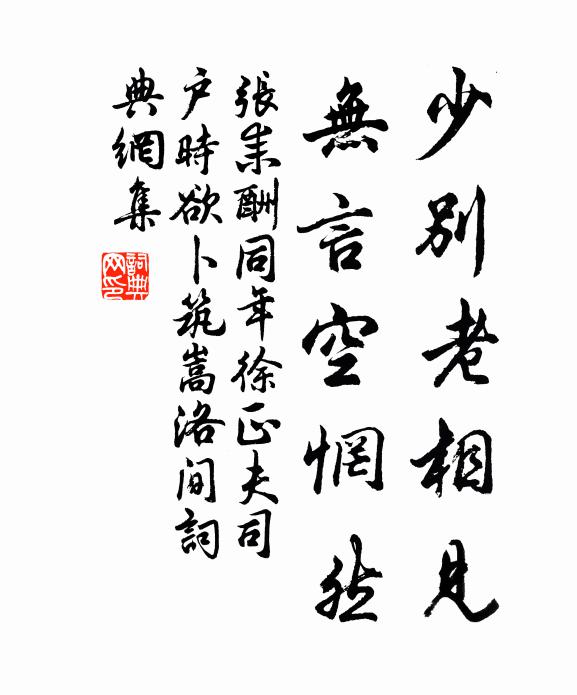 少別老相見
無言空惘然
張耒酬同年徐正夫司
户時欲卜筑嵩洛间詞
典網集
詞典网印